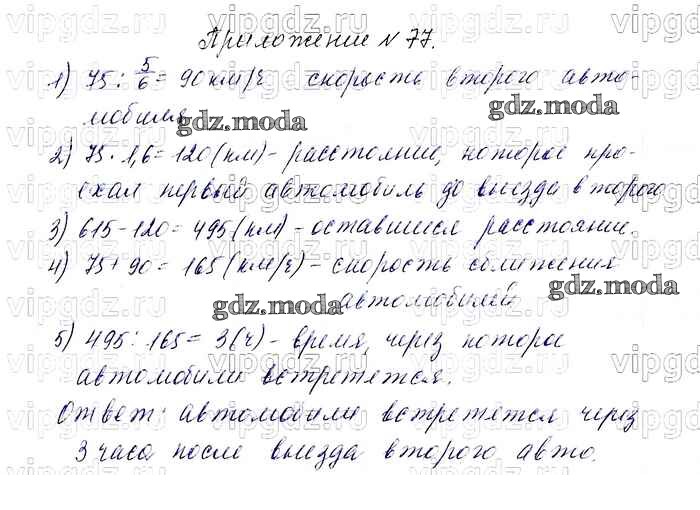 Приложение № 77.
1) 75 : 5/6 = 90 км/ч скорость второго авто-
мобиля
gdz.moda
gdz.moda
2) 75 · 1,6 = 120 (км) - расстояние, которое про-
ехал первый автомобиль до выезда второго
3) 615 - 120 = 495 (км) - оставшиеся расстояние.
4) 75 + 90 = 165 (км/ч) - скорость сближения
автомобилей
gdz.moda
gdz.moda
5) 495 : 165 = 3 (ч) - время, через которое
автомобили встретятся.
Ответ: автомобили встретятся через
3 часа после выезда второго авто.
vipgdz.ru